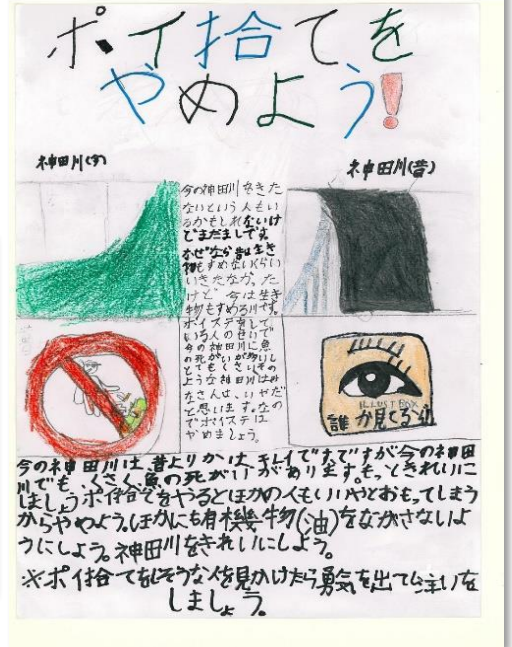 ポイ捨てを
やめよう!
神田川(今)
神田川(昔)
今の神田川をきた
ないという人もい
るかもしれないけ
どまだましです。
なぜなら昔は生き
物もすめないくらい
いきたなか、た
けど、今は生き
物もすめる川です。
ポイステをして
いる人のせいで
今の神田川に魚
の死がいが多いし
とてもくさいその
ような神田川はみ
なさんは、いやだ
と思います。なの
でポイステは
やめましょう。
ILLUST BOX
誰か見てるぞ
今の神田川は、昔よりかは、キレイですですが今の神田
川でも、くさく魚の死がいがあります。もっときれいに
しましょうポイ捨てをやるとほかの人もいいやとおもってしまう
からややよう。ほかにも有機物(油)をながさないよ
うにしよう。神田川をきれいにしよう。
※ポイ捨てをしそうな人を見かけたら勇気を出て注いを
しましょう。